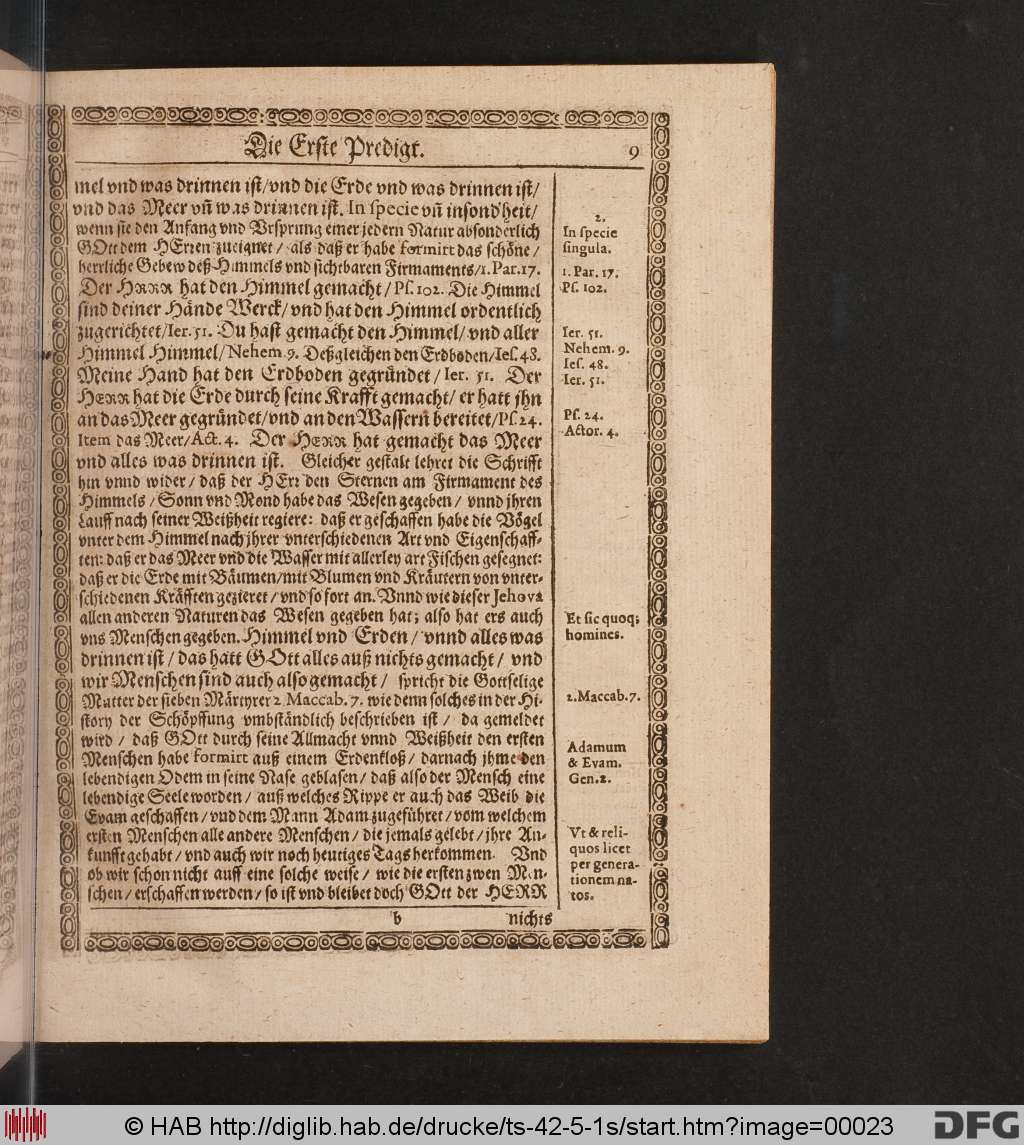 Die Erste Predigt. 9
mel vnd was drinnen ist/vnd die Erde vnd was drinnen ist/
vnd das Meer vñ was drinnen ist. In specie vñ insond'heit/
wenn sie den Anfang vnd Vrsprung einer jedern Natur absonderlich
GOtt dem HErren zueignet/ als daß er habe formirt das schöne/
herrliche Gebew deß Himmels vnd sichtbaren Firmaments/1. Par. 17.
Der HERR hat den Himmel gemacht/ Ps. 102. Die Himmel
sind deiner Hände Werck/ vnd hat den Himmel ordentlich
zugerichtet/Ier. 51. Du hast gemacht den Himmel/ vnd aller
Himmel Himmel/Nehem 9. Deßgleichen den Erdboden/Ies. 48.
Meine Hand hat den Erdboden gegründet/ Ier. 51. Der
HERR hat die Erde durch seine Krafft gemacht/ er hatt jhn
an das Meer gegründet/vnd an den Wassern bereitet/Ps. 24.
Item das Meer/Act. 4. Der HERR hat gemacht das Meer
vnd alles was drinnen ist. Gleicher gestalt lehret die Schrifft
hin vnnd wider/ daß der HErr den Sternen am Firmament des
Himmels/ Sonn vnd Mond habe das Wesen gegeben/ vnnd jhren
Lauff nach seiner Weißheit regiere: daß er geschaffen habe die Vögel
vnter dem Himmel nach jhrer vnterschiedenen Art vnd Eigenschaff-
ten: daß er das Meer vnd die Wasser mit allerley art Fischen gesegnet:
daß er die Erde mit Bäumen/mit Blumen vnd Kräutern von vnter-
schiedenen Kräfften gezieret/ vnd so fort an. Vnnd wie dieser Jehova
allen anderen Naturen das Wesen gegeben hat; also hat ers auch
vns Menschen gegeben. Himmel vnd Erden/ vnnd alles was
drinnen ist/ das hatt GOtt alles auß nichts gemacht/ vnd
wir Menschen sind auch also gemacht/ spricht die Gottselige
Mutter der sieben Märtyrer 2 Maccab. 7. wie denn solches in der Hi-
story der Schöpffung vmbständlich beschrieben ist/ da gemeldet
wird/ daß GOtt durch seine Allmacht vnnd Weißheit den ersten
Menschen habe formirt auß einem Erdenkloß/ darnach jhme den
lebendigen Odem in seine Nase geblasen/ daß also der Mensch eine
lebendige Seele worden/ auß welches Rippe er auch das Weib die
Evam geschaffen/ vnd dem Mann Adam zugeführet/ vom welchem
ersten Menschen alle andere Menschen/ die jemals gelebt/ jhre An-
kunfft gehabt/ vnd auch wir noch heutiges Tags herkommen. Vnd
ob wir schon nicht auff eine solche weise/ wie die ersten zwen Men-
schen/ erschaffen werden/ so ist vnd bleibet doch GOtt der HERR
b nichts
2.
In specie
singula.
1. Par. 17.
Ps. 102.
Ier. 51.
Nehem. 9.
Ies. 48.
Ier. 51.
Ps. 24.
Actor. 4.
Et sic quoq;
homines.
2. Maccab. 7.
Adamum
& Evam.
Gen. 2.
Vt & reli-
quos licet
per genera-
tionem na-
tos.
© HAB http://diglib.hab.de/drucke/ts-42-5-1s/start.htm?image=00023
DFG